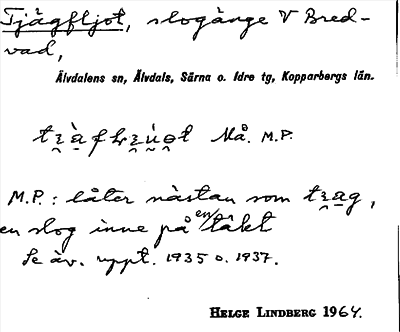 Tjågfljot, slogånge V Bred-
vad,
Älvdalens sn, Älvdals, Särna o. Idre tg, Kopparbergs län.
Må. M.P.
M.P.: låter nästan som
en slog inne på en täkt
Se äv. uppt. 1935 o. 1937.
HELGE LINDBERG 1964.